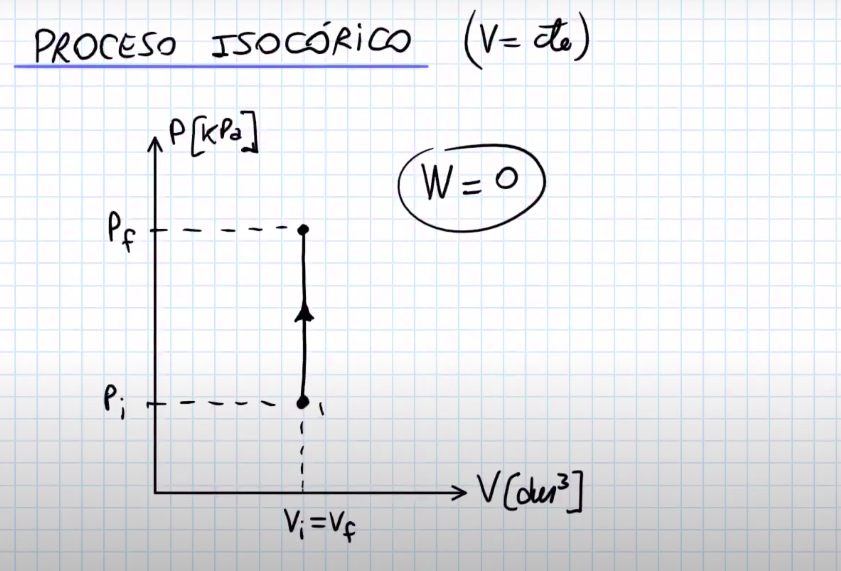 PROCESO ISOCÓRICO (V = cte)
P [kPa]
W = 0
Pf
Pi
V [dm³]
Vi = Vf